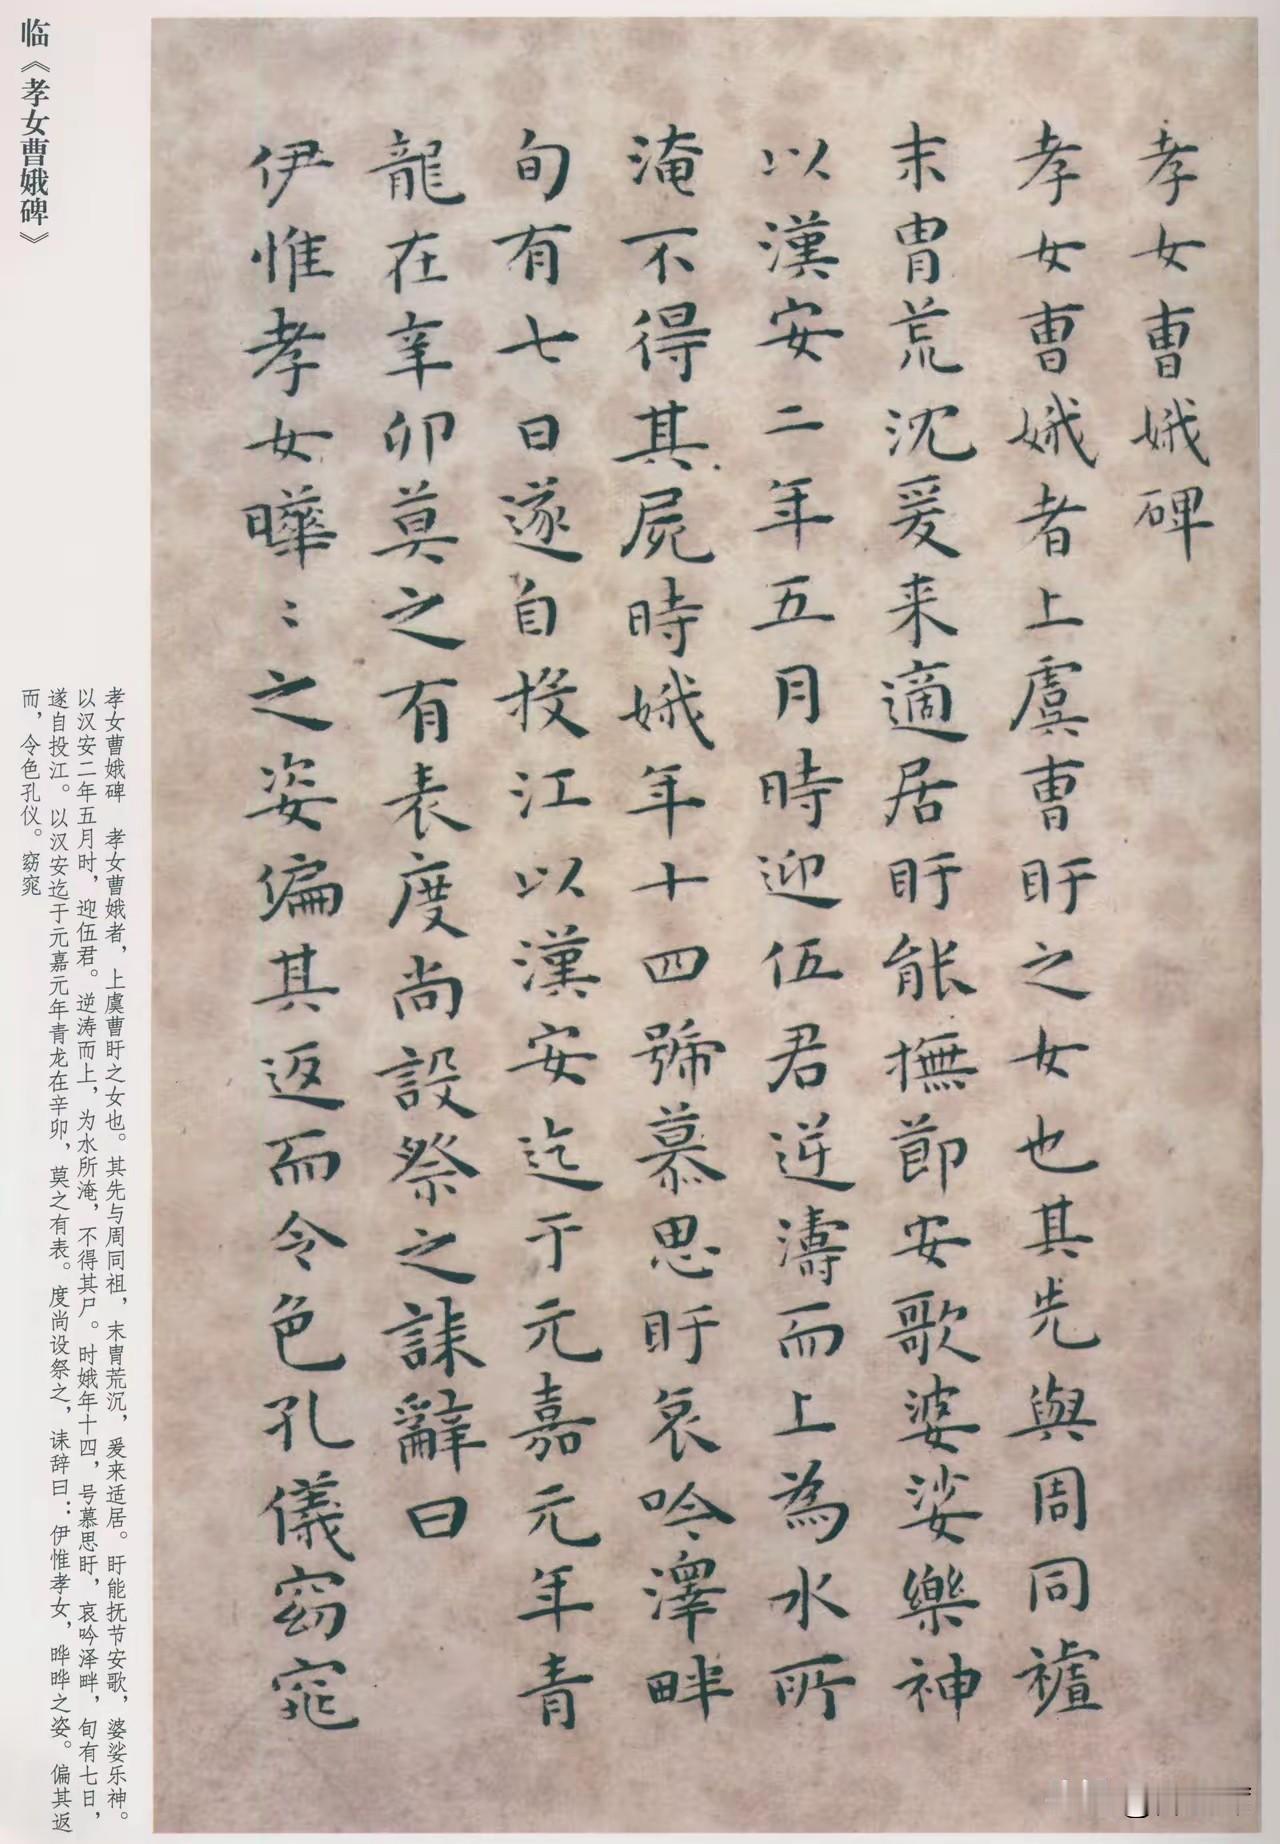 孝女曹娥碑
孝女曹娥者上虞曹盱之女也其先與周同祖
末胄荒沈爰来適居盱能撫節安歌婆娑樂神
以漢安二年五月時迎伍君逆濤而上為水所
淹不得其屍時娥年十四號慕思盱哀吟澤畔
旬有七日遂自投江以漢安迄于元嘉元年青
龍在辛卯莫之有表度尚設祭之誄辭曰
伊惟孝女曄〻之姿偏其返而令色孔儀窈窕
临《孝女曹娥碑》
孝女曹娥碑　孝女曹娥者，上虞曹盱之女也。其先与周同祖，末胄荒沉，爰来适居。盱能抚节安歌，婆娑乐神。
以汉安二年五月时，迎伍君。逆涛而上，为水所淹，不得其尸。时娥年十四，号慕思盱，哀吟泽畔，旬有七日，
遂自投江。以汉安迄于元嘉元年青龙在辛卯，莫之有表。度尚设祭之，诔辞曰：伊惟孝女，晔晔之姿。偏其返
而，令色孔仪。窈窕